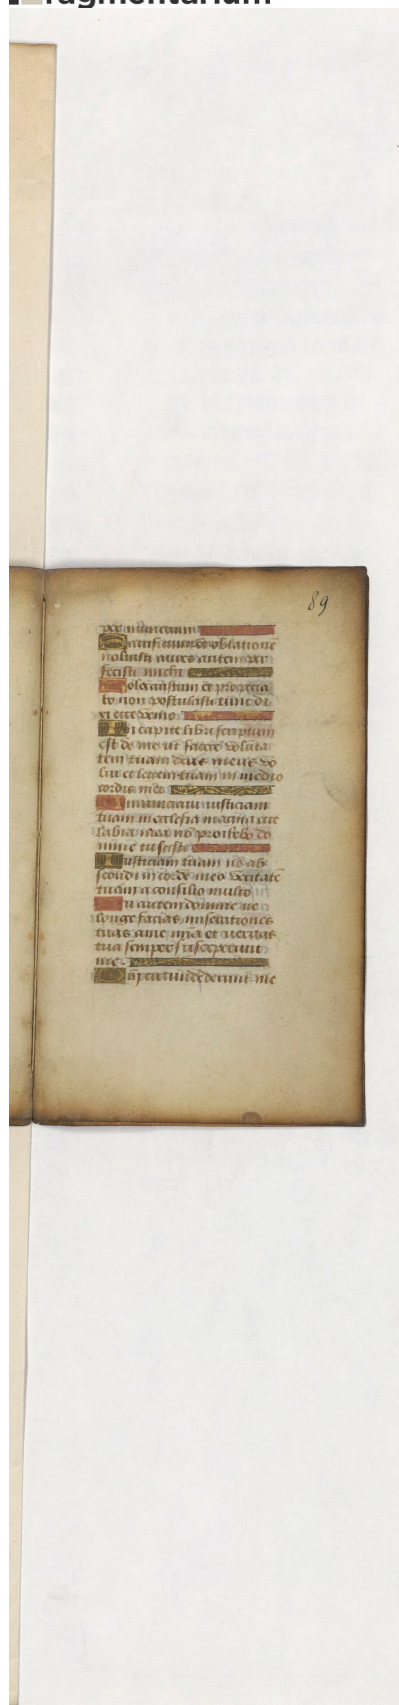 ragmentarium
89
per numerum
Sacrificium et oblationē
noluisti aures autem per
fecisti michi
Holocaustum et pro pecca
to non postulasti tunc di
xi ecce venio
In capite libri scriptum
est de me ut facerē volūta
tem tuam deus meus vo
lui et legem tuam in medio
cordis mei
Annunciavi iusticiam
tuam in ecclesia magna ecce
labia mea nō prohibebo do
mine tu scisti
Iusticiam tuam nō abs
scondi in corde meo veritatē
tuam
Tu autem domine ne
longe facias miserationes
tuas
tua semper susceperunt
me
circundederunt me